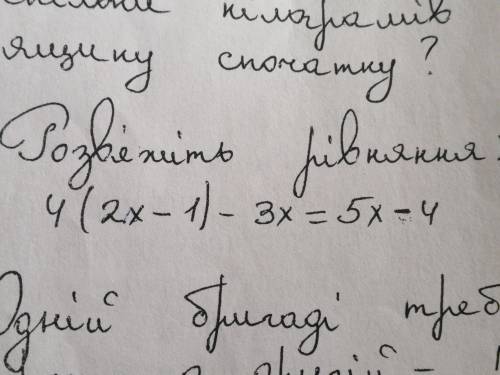 кілограмів
ящику спочатку?
Розв'яжіть рівняння:
4(2x-1)-3x=5x-4
Одній бригаді треб